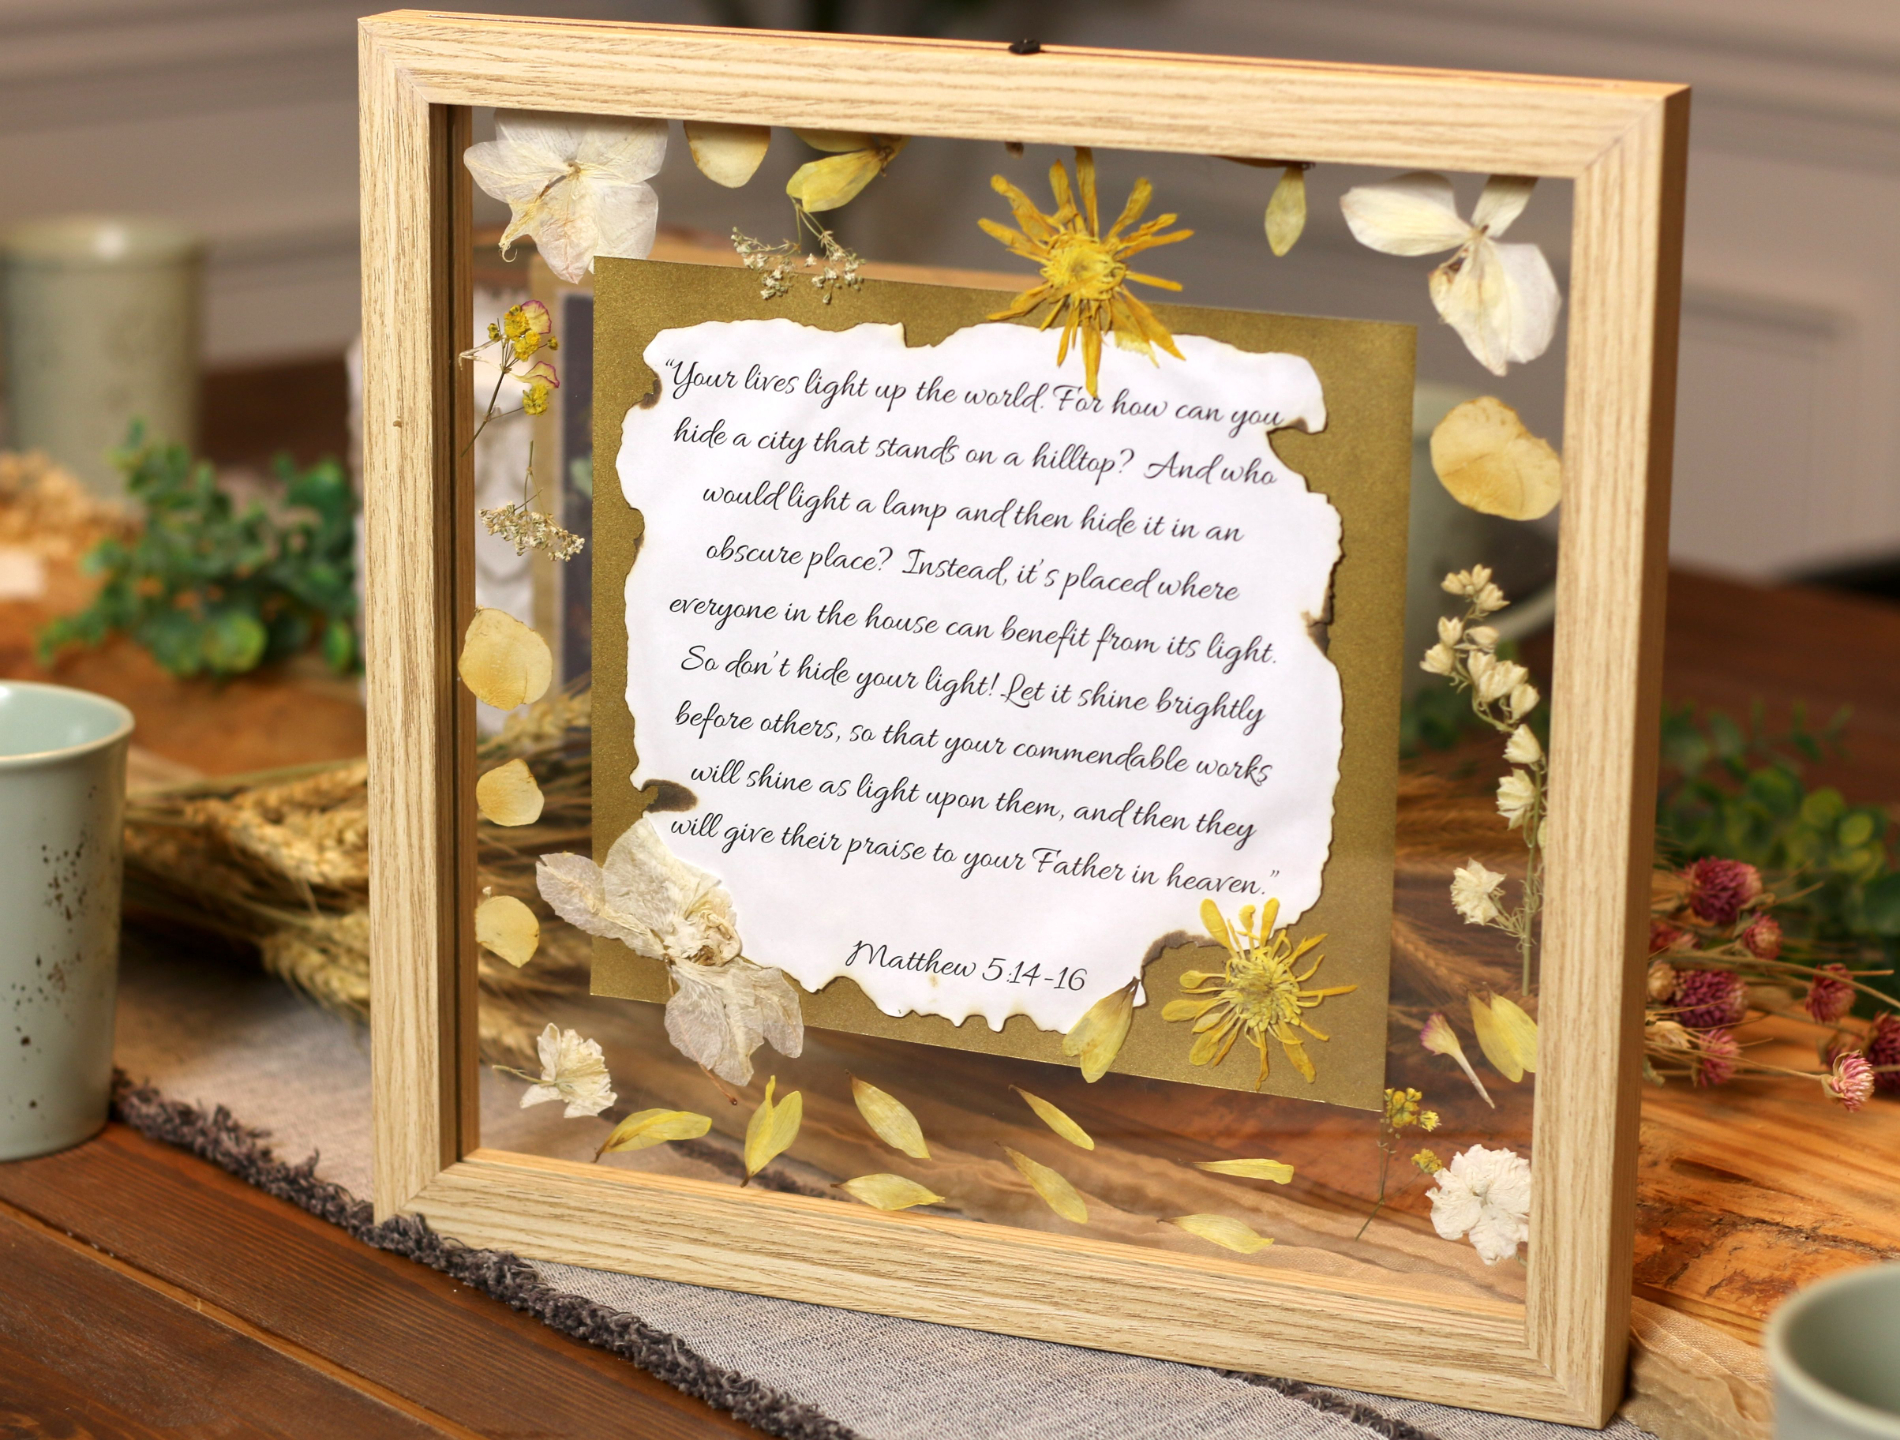 “Your lives light up the world. For how can you
hide a city that stands on a hilltop? And who
would light a lamp and then hide it in an
obscure place? Instead, it's placed where
everyone in the house can benefit from its light.
So don't hide your light! Let it shine brightly
before others, so that your commendable works
will shine as light upon them, and then they
will give their praise to your Father in heaven.”
Matthew 5:14-16